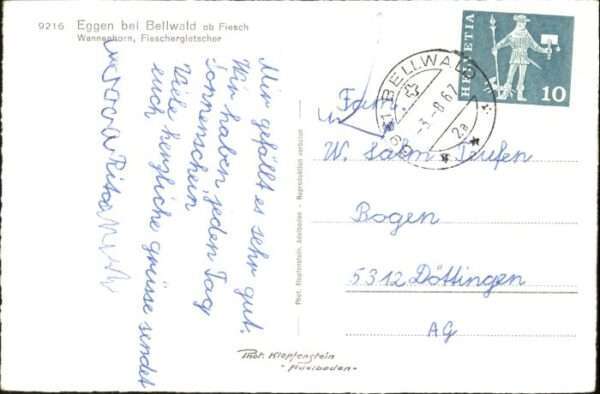 9216 Eggen bei Bellwald ob Fiesch
Wannenhorn, Fieschergletscher
Mir gefällt es sehr gut.
Wir haben jeden Tag
Sonnenschein
Viele herzliche grüsse sendet
euch
Rita
Phot. Klopfenstein, Adelboden - Reproduktion verboten
Phot. Klopfenstein
- Adelboden -
HELVETIA
10
BELLWALD
-3.-8.67
2a
Fam.
W. Salm-Teufen
Bogen
5312 Döttingen
AG